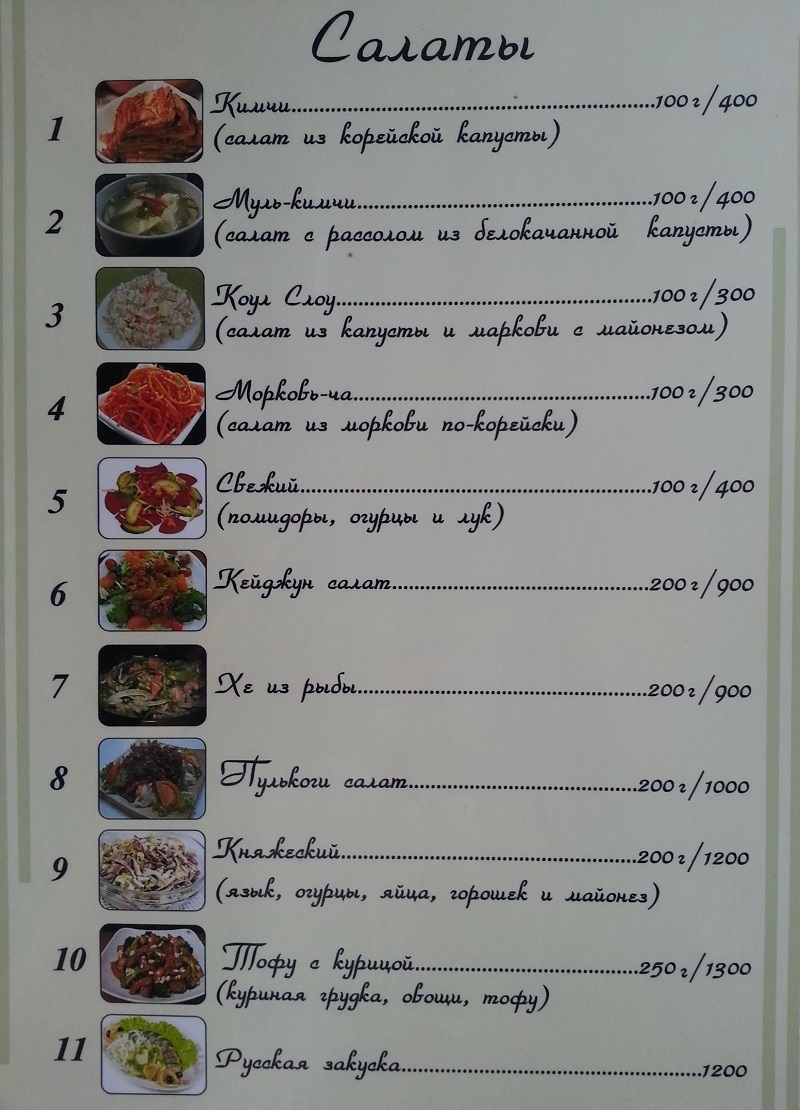 Салаты
1 Кимчи 100 г/400
(салат из корейской капусты)
2 Муль-кимчи 100 г/400
(салат с рассолом из белокачанной капусты)
3 Коул Слоу 100 г/300
(салат из капусты и маркови с майонезом)
4 Морковь-ча 100 г/300
(салат из моркови по-корейски)
5 Свежий 100 г/400
(помидоры, огурцы и лук)
6 Кейджун салат 200 г/900
7 Хе из рыбы 200 г/900
8 Пулькоги салат 200 г/1000
9 Княжеский 200 г/1200
(язык, огурцы, яйца, горошек и майонез)
10 Тофу с курицой 250 г/1300
(куриная грудка, овощи, тофу)
11 Русская закуска 1200